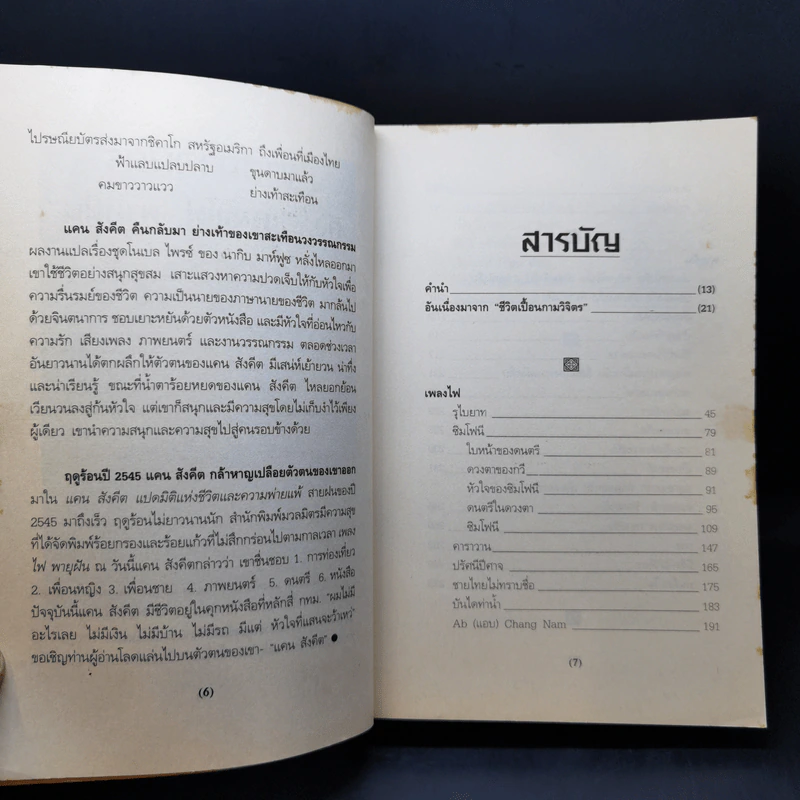 ไปรษณียบัตรส่งมาจากชิคาโก สหรัฐอเมริกา ถึงเพื่อนที่เมืองไทย
ฟ้าแลบแปลบปลาบ ขุนดาบมาแล้ว
คมขาววาวแวว ย่างเท้าสะเทือน
แคน สังคีต คืนกลับมา ย่างเท้าของเขาสะเทือนวงวรรณกรรม
ผลงานแปลเรื่องชุดโนเบล ไพรซ์ ของ นากิบ มาห์ฟูซ หลั่งไหลออกมา
เขาใช้ชีวิตอย่างสนุกสุขสม เสาะแสวงหาความปวดเจ็บให้กับหัวใจเพื่อ
ความรื่นรมย์ของชีวิต ความเป็นนายของภาษานายของชีวิต มากล้นไป
ด้วยจินตนาการ ชอบเยาะหยันด้วยตัวหนังสือ และมีหัวใจที่อ่อนไหวกับ
ความรัก เสียงเพลง ภาพยนตร์ และงานวรรณกรรม ตลอดช่วงเวลา
อันยาวนานได้ตกผลึกให้ตัวตนของแคน สังคีต มีเสน่ห์เย้ายวน น่าทึ่ง
และน่าเรียนรู้ ขณะที่น้ำตาร้อยหยดของแคน สังคีต ไหลยอกย้อน
เวียนวนลงสู่ก้นหัวใจ แต่เขาก็สนุกและมีความสุขโดยไม่เก็บงำไว้เพียง
ผู้เดียว เขานำความสนุกและความสุขไปสู่คนรอบข้างด้วย
ฤดูร้อนปี 2545 แคน สังคีต กล้าหาญเปลือยตัวตนของเขาออก
มาใน แคน สังคีต แปดมิติแห่งชีวิตและความพ่ายแพ้ สายฝนของปี
2545 มาถึงเร็ว ฤดูร้อนไม่ยาวนานนัก สำนักพิมพ์มวลมิตรมีความสุข
ที่ได้จัดพิมพ์ร้อยกรองและร้อยแก้วที่ไม่สึกกร่อนไปตามกาลเวลา เพลง
ไฟ พายุฝัน ณ วันนี้แคน สังคีตกล่าวว่า เขาชื่นชอบ 1. การท่องเที่ยว
2. เพื่อนหญิง 3. เพื่อนชาย 4. ภาพยนตร์ 5. ดนตรี 6. หนังสือ
ปัจจุบันนี้แคน สังคีต มีชีวิตอยู่ในคุกหนังสือที่หลักสี่ กทม. "ผมไม่มี
อะไรเลย ไม่มีเงิน ไม่มีบ้าน ไม่มีรถ มีแต่ หัวใจที่แสนจะว้าเหว่"
ขอเชิญท่านผู้อ่านโลดแล่นไปบนตัวตนของเขา- "แคน สังคีต" ●
(6)
สารบัญ
คำนำ (13)
อันเนื่องมาจาก "ชีวิตเปื้อนกามวิจิตร" (21)
เพลงไฟ
รุไบยาท 45
ซิมโฟนี 79
ใบหน้าของดนตรี 81
ดวงตาของกวี 89
หัวใจของซิมโฟนี 91
ดนตรีในดวงตา 95
ซิมโฟนี 109
คาราวาน 147
ปรัศนีปีศาจ 165
ชายไทยไม่ทราบชื่อ 175
บันไดท่าน้ำ 183
Ab (แอบ) Chang Nam 191
(7)